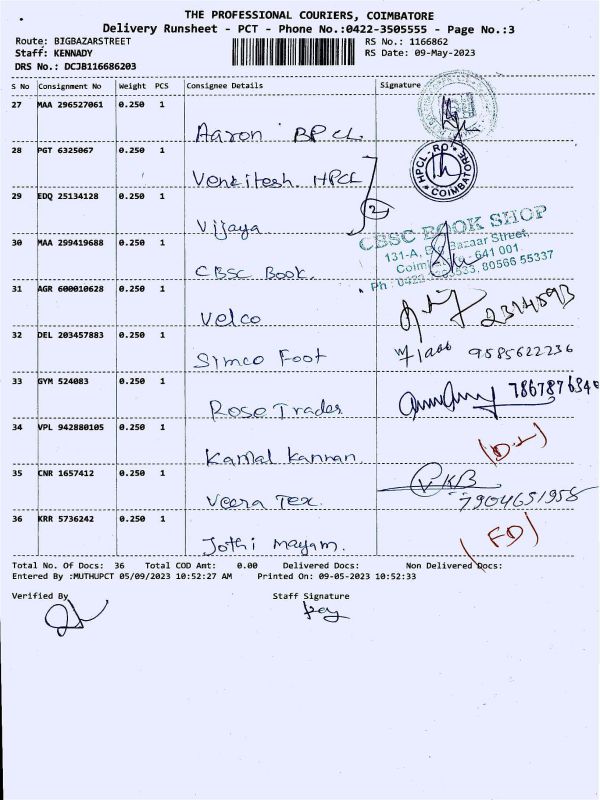 THE PROFESSIONAL COURIERS, COIMBATORE
Delivery Runsheet - PCT - Phone No.:0422-3505555 - Page No.:3
Route: BIGBAZARSTREET RS No.: 1166862
Staff: KENNADY RS Date: 09-May-2023
DRS No.: DCJB116686203
S No Consignment No Weight PCS Consignee Details Signature
27 MAA 296527061 0.250 1 Aaron BPCL.
28 PGT 6325067 0.250 1 Venkitesh. HPCL HPCL-RO COIMBATORE
29 EDQ 25134128 0.250 1 Vijaya 2
CBSC BOOK SHOP
131-A, Bazaar Street,
30 MAA 299419688 0.250 1 CBSC Book. 641 001
Ph : 80566 55337
31 AGR 600010628 0.250 1 Velco 2314593
32 DEL 203457883 0.250 1 Simco Foot 9585622236
33 GYM 524083 0.250 1 Rose Trader
34 VPL 942880105 0.250 1 Kamal Kannan (D.L)
35 CNR 1657412 0.250 1 Veera Tex. VKB
7904651958
36 KRR 5736242 0.250 1 Jothi mayam. (FD)
Total No. Of Docs: 36 Total COD Amt: 0.00 Delivered Docs: Non Delivered Docs:
Entered By :MUTHUPCT 05/09/2023 10:52:27 AM Printed On: 09-05-2023 10:52:33
Verified By Staff Signature